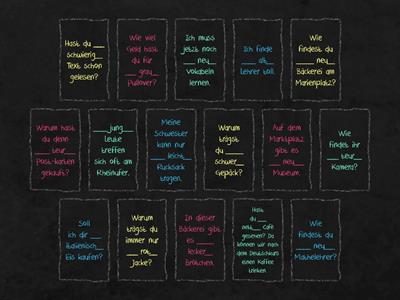 Hast du ___
schwierig__
Text schon
gelesen?
Wie viel
Geld hast
du für
___ grau__
Pullover?
Ich muss
jetzt noch
___ neu__
Vokabeln
lernen.
Ich finde
___ alt__
Lehrer toll.
Wie
findest du
____ neu__
Bäckerei am
Marienplatz?
Warum hast
du denn
___ teur__
Post-karten
gekauft?
___jung__
Leute
treffen
sich oft am
Rheinufer.
Meine
Schwester
kann nur
___ leicht_
Rucksack
tragen.
Warum
trägst
du ____
schwer__
Gepäck?
Auf dem
Marktplatz
gibt es
___ neu__
Museum.
Wie
findet ihr
___ teur__
Kamera?
Soll
ich dir __
Italienisch__
Eis kaufen?
Warum
trägst du
immer nur
___ rot_
Jacke?
In dieser
Bäckerei gibt
es ____
lecker__
Brötchen.
Hast
du ___
nett__ Café
gesehen? Da
können wir nach
dem Deutschkurs
einen Kaffee
trinken
Wie
findest du
___ neu__
Mathelehrer?